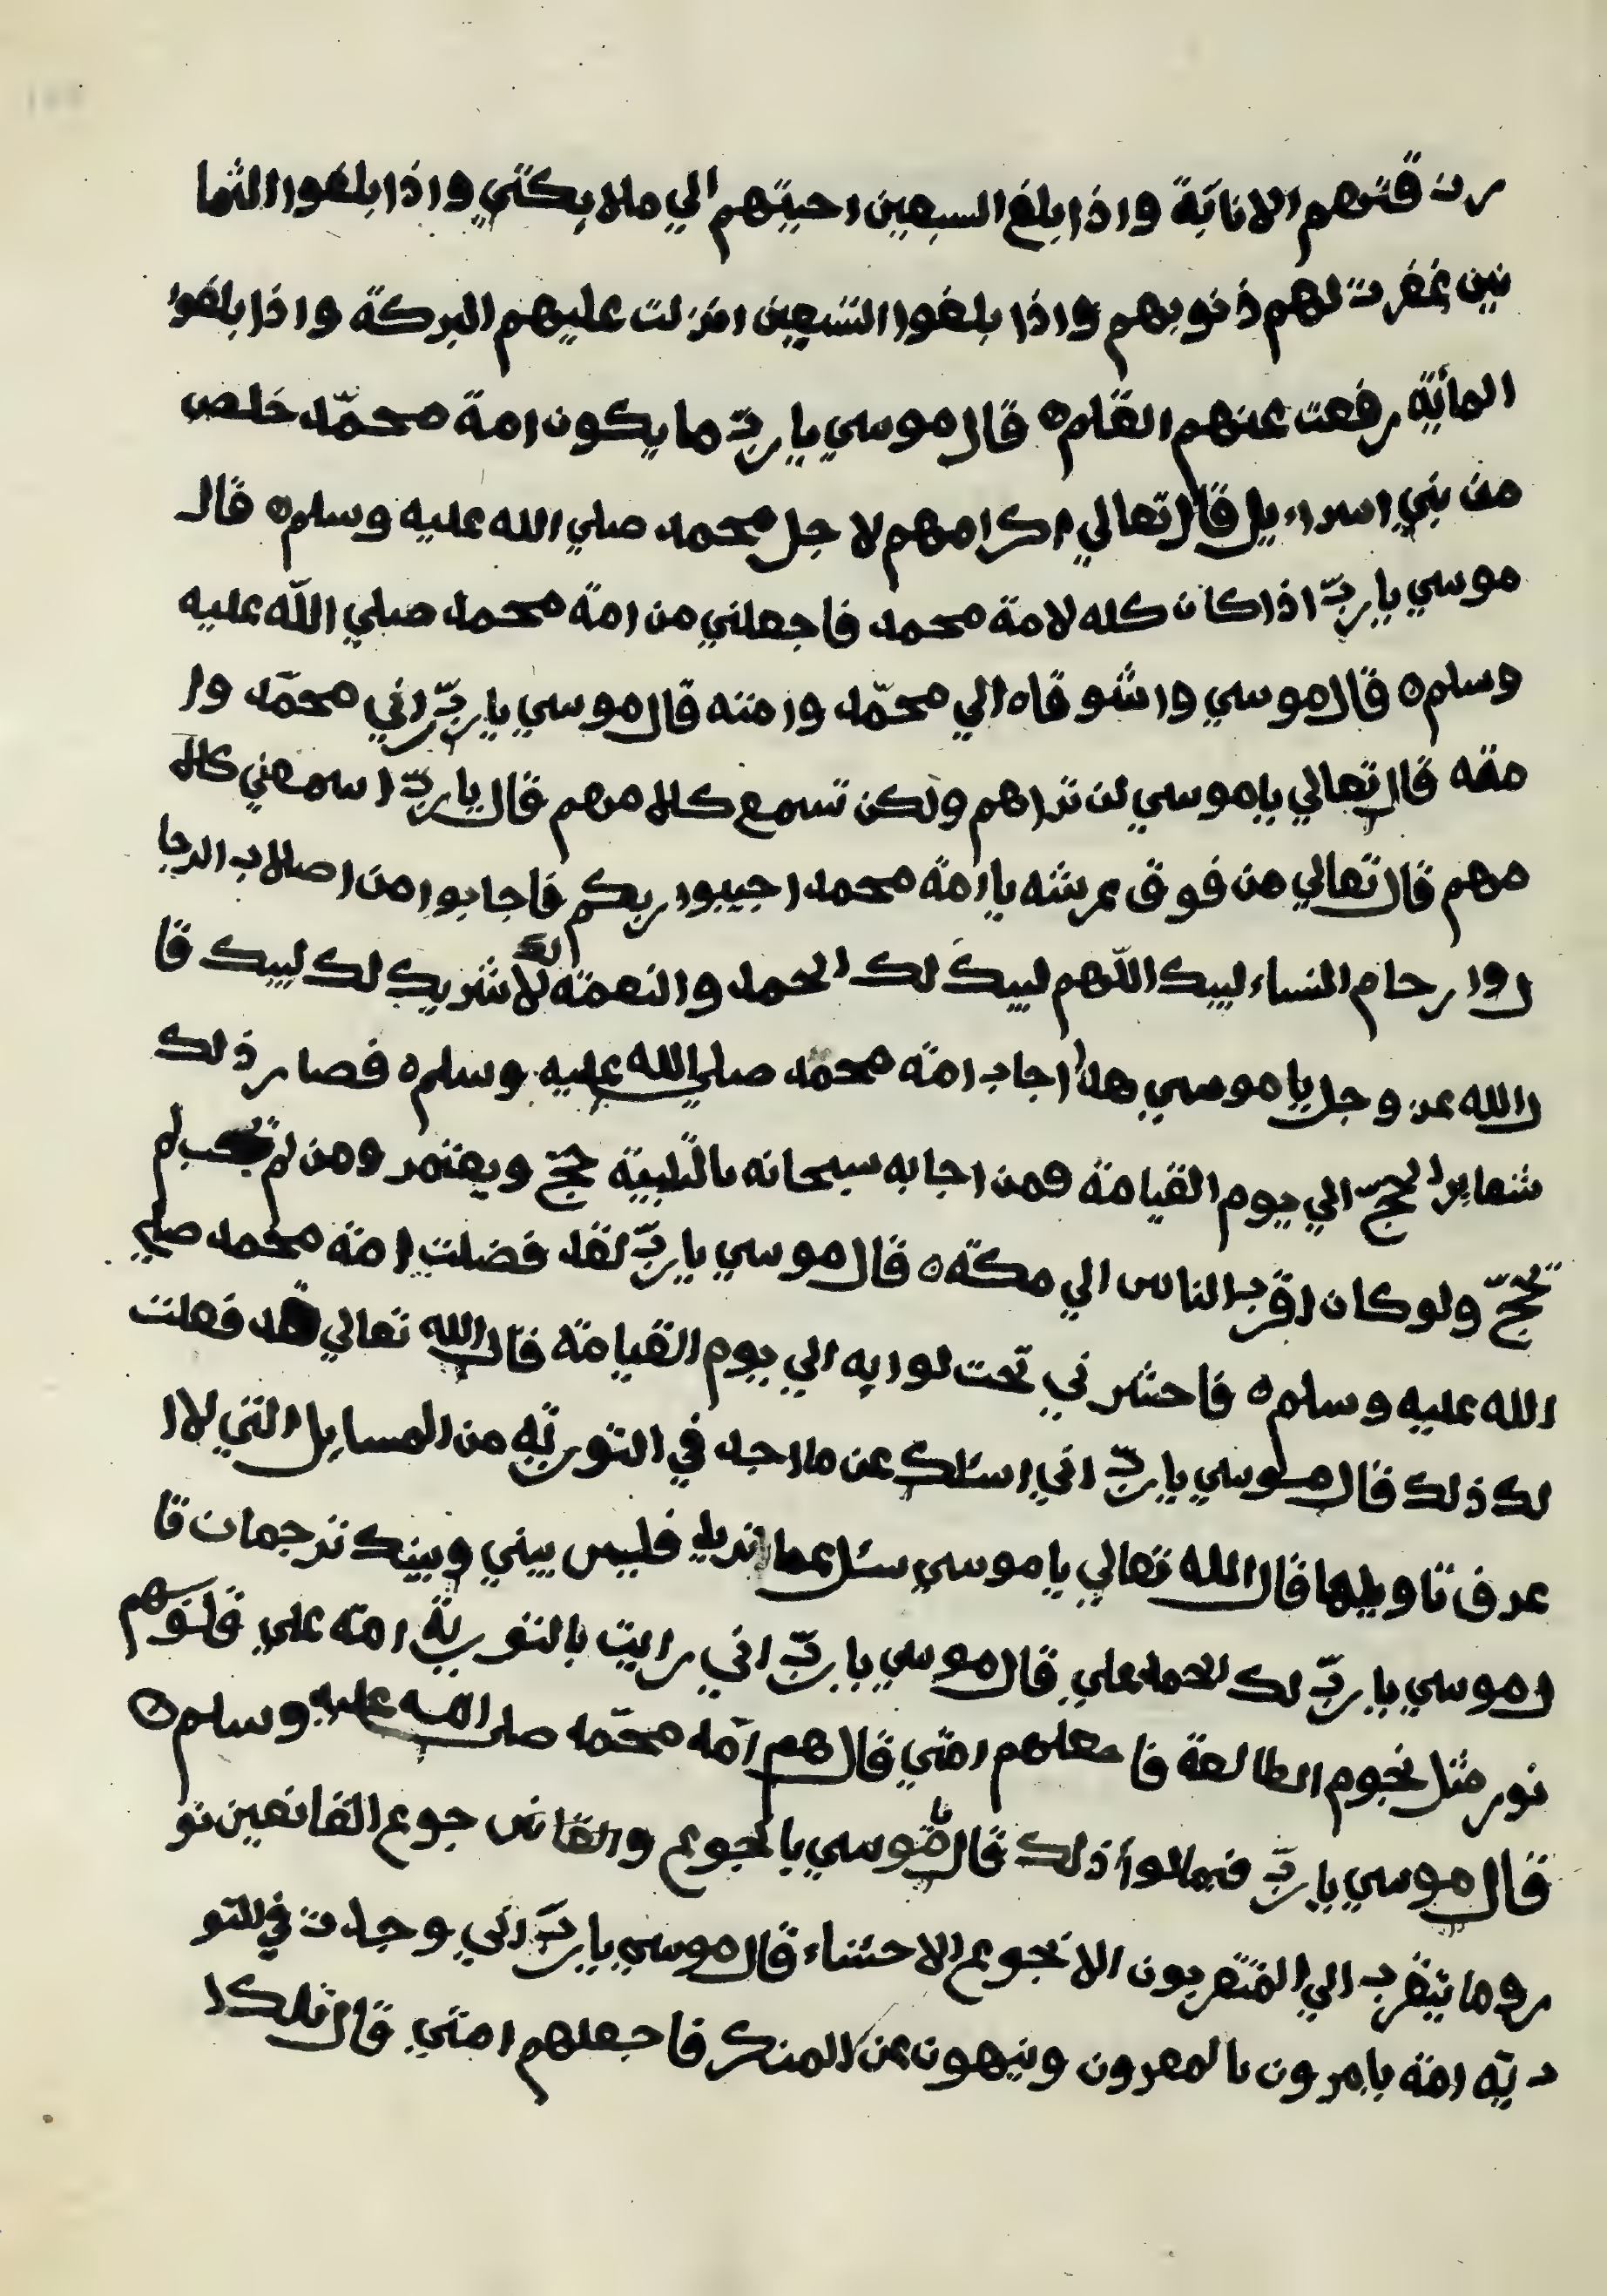 رزقتهم الانابة واذا بلغ السبعين احبيتهم الي ملايكتي واذا بلغوا الثما
نين غفرت لهم ذنوبهم واذا بلغوا التسعين انزلت عليهم البركة واذا بلغوا
المأية رفعت عنهم القلم ه قال موسي يا ربّ ما يكون امة محمّد خلص
من بني اسراءيل قال تعالي اكرامهم لاجل محمد صلي الله عليه وسلم ه قال
موسي يا ربّ اذا كان كله لامة محمد فاجعلني من امة محمد صلي اللّه عليه
وسلم ه قال موسي واشوقاه الي محمّد وامته قال موسي يا ربّ ارني محمّد وا
مته قال تعالي يا موسي لن تراهم ولكن تسمع كلامهم قال يا ربّ اسمعني كلا
مهم قال تعالي من فوق عرشه يا امة محمد اجيبوا ربكم فاجابوا من اصلاب الرجا
ل وارحام النساء لبيك اللّهم لبيك لك الحمد والنعمة لك لا شريك لك لبيك قا
ل الله عز وجل يا موسي هذا اجاب امة محمّد صلي الله عليه وسلم ه فصار ذلك
شعاير الحجّ الي يوم القيامة فمن اجابه سبحانه بالتلبية حجّ ويعتمر ومن لم يجب لم
يحجّ ولو كان اقرب الناس الي مكة ه قال موسي يا ربّ لقد فضلت امة محمد صلي
الله عليه وسلم ه فاحشرني تحت لوايه الي يوم القيامة قال الله تعالي قد فعلت
لك ذلك قال موسي يا ربّ اني اسئلك عن ما اجد في التورية من المسايل التي لا ا
عرف تاويلها قال الله تعالي يا موسي سئل عما تريد فليس بيني وبينك ترجمان قا
ل موسي يا ربّ لك الحمد علي قال موسي يا ربّ اني رايت بالتورية امة علي قلوبهم
نور مثل نجوم الطالعة فاجعلهم امتي قال هم امة محمّد صلي الله عليه وسلم ه
قال موسي يا ربّ فبما لوا ذلك قال يا موسي بالجوع والقاني جوع القانعين نو
ر وما يتقرب الي المتقربون الا بجوع الاحشاء قال موسي يا ربّ اني وجدت في التو
رية امة يامرون بالمعرون وينهون عن المنكر فاجعلهم امتي قال تلك ا